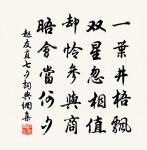 一葉井梧飄
双星忽相值
却怜參與商
晤會當何夕
趙友直七夕詞典網集